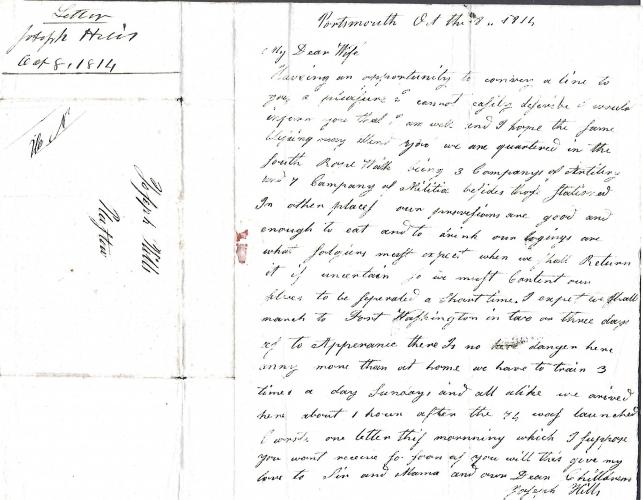 Letter
Joseph Hills
Oct 8, 1814
Joseph Hills
Portsmouth Oct the 8.. 1814
My Dear Wife
Haveing an opportunity to convey a line to
you a pleasure I cannot easily describe I would
inform you that I am well and I hope the same
blessing may attend you we are quartered in the
South Rope Walk being 3 Companys of Artilery
and 7 Company of Militia besides those Stationed
In other places our provisions are good and
enough to eat and to drink our logings are
what solgiers must expect when we shall Return
it is uncertain so we must Content our
selves to be seperated a short time. I expect we shall
march to Fort Washington in two or three days
as to Apperance there Is no danger here
anny more than at home we have to train 3
times a day Sundays and all alike we arived
here about 1 hour after the 74 was launched
I wrote one letter this mornning which I suppose
you wont receive so soon as you will this give my
love to Sir and Mama and our Dear Childrens
Joseph Hills